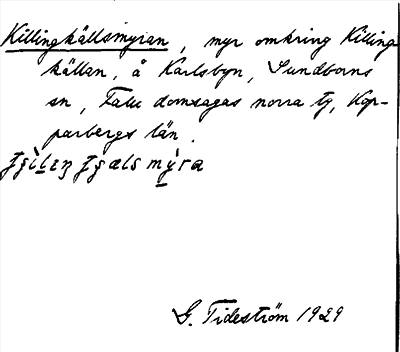 Killingkällsmyran, myr omkring Killing-
källan, å Karlsbyn, Sundborns
sn, Falu domsagas norra tg, Kop-
parbergs län.
G. Tideström 1929